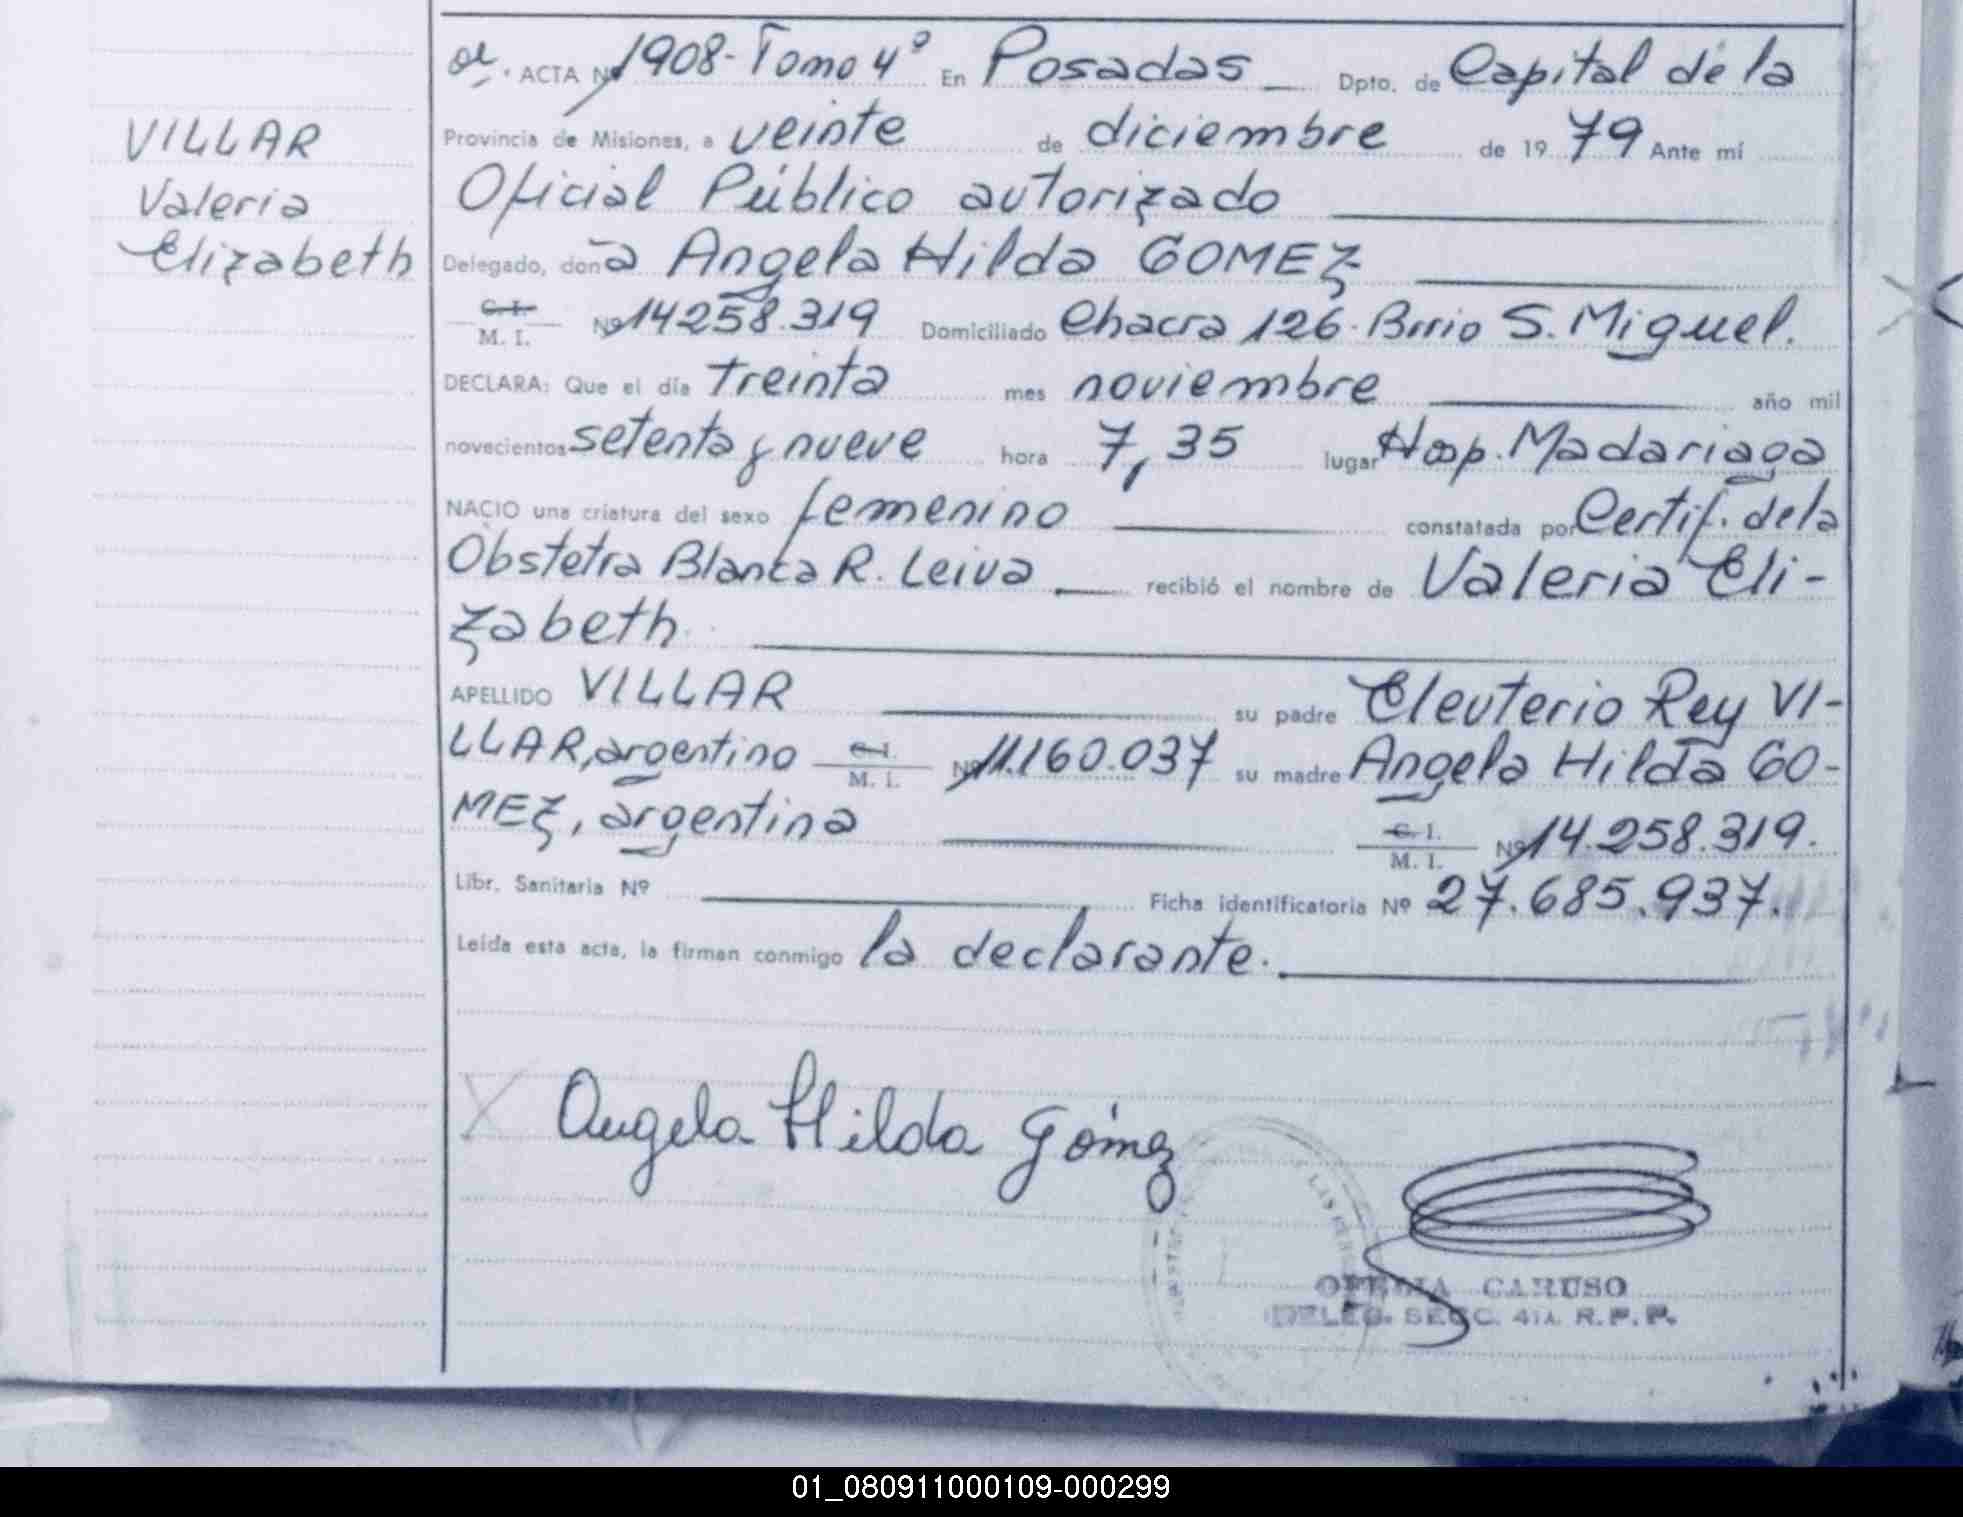 VILLAR
Valeria
Elizabeth
ACTA Nº 1908-Tomo 4º En Posadas Dpto. de Capital de la
Provincia de Misiones, a veinte de diciembre de 1979 Ante mí
Oficial Público autorizado
Delegado, doña Angela Hilda GOMEZ
C. I.
M. I. Nº 14258.319 Domiciliado Chacra 126. Brrio S. Miguel.
DECLARA: Que el día Treinta mes noviembre año mil
novecientos setenta y nueve hora 7,35 lugar Hosp. Madariaga
NACIO una criatura del sexo femenino constatada por Certif. de la
Obstetra Blanca R. Leiva recibió el nombre de Valeria Eli-
zabeth
APELLIDO VILLAR su padre Eleuterio Rey VI-
LLAR, argentino C. I. M. I. Nº 11.160.037 su madre Angela Hilda GO-
MEZ, argentina C. I. M. I. Nº 14.258.319.
Libr. Sanitaria Nº Ficha identificatoria Nº 27.685.937.
Leída esta acta, la firman conmigo la declarante.
X Angela Hilda Gómez
OFELIA CARUSO
DELEG. SECC. 4ta. R.P.P.
01_080911000109-000299